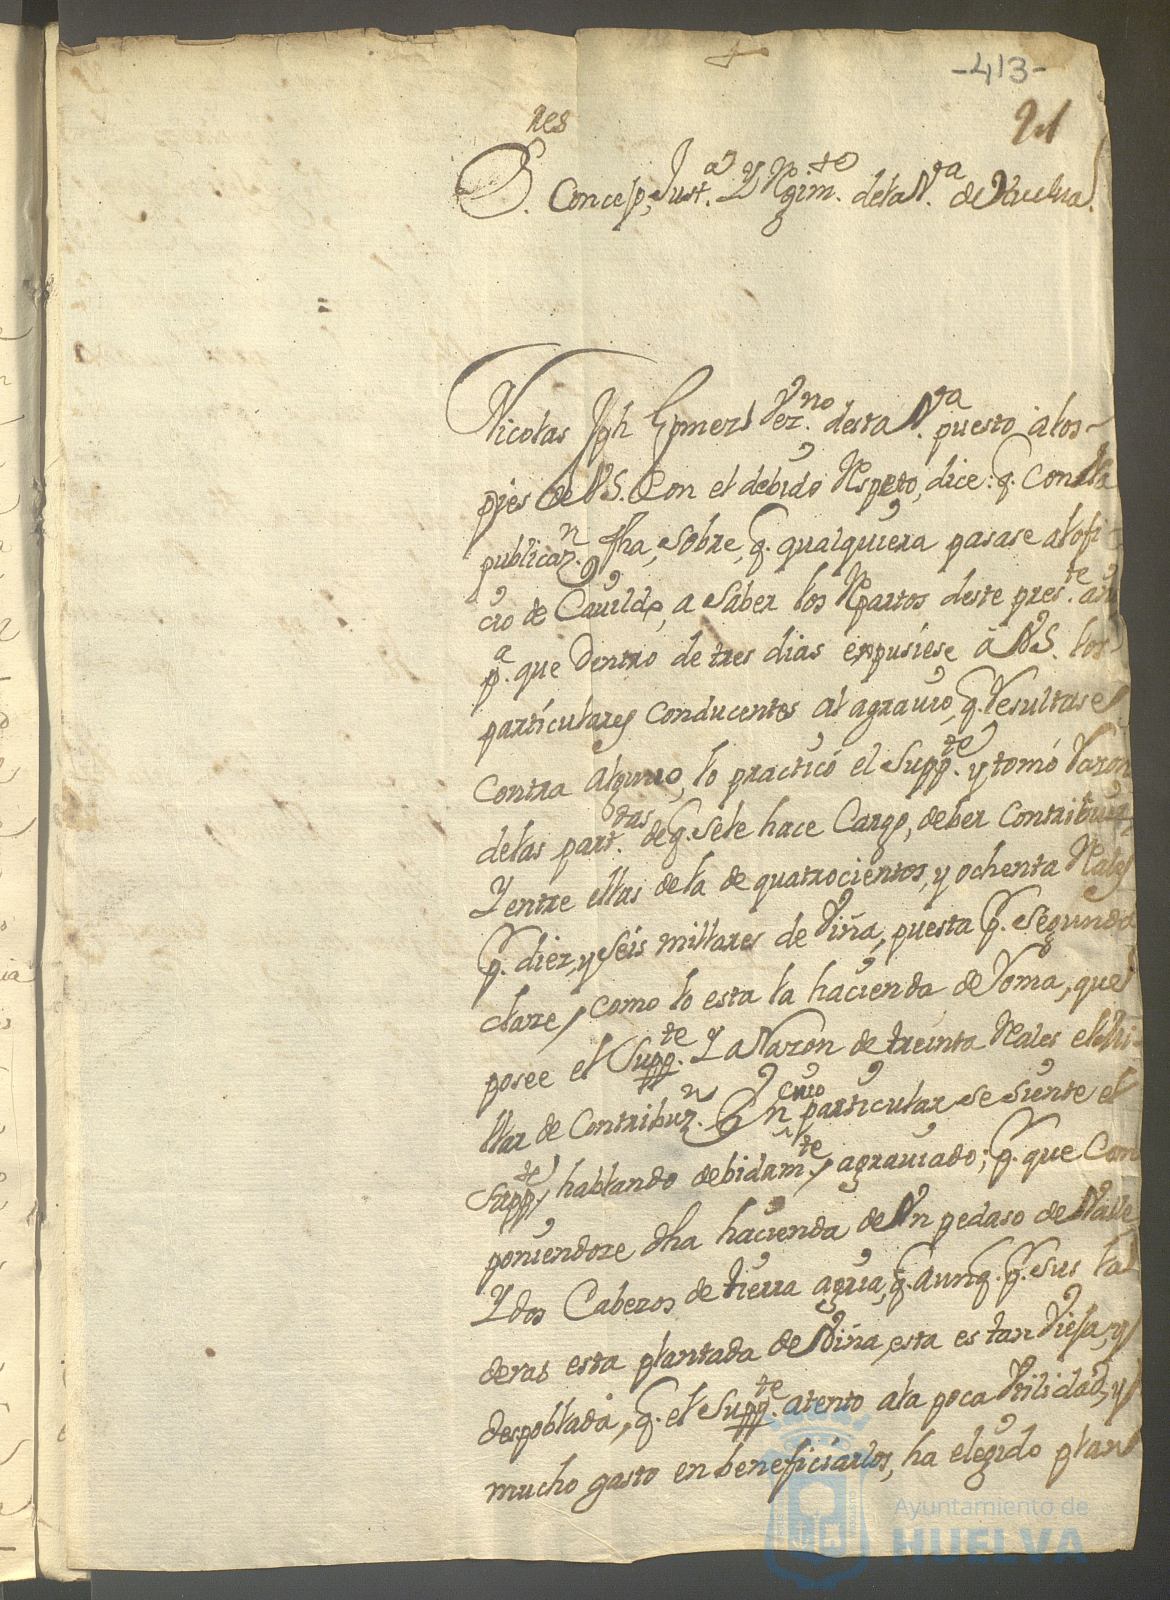 -413-
21
res
S. Concejo, Just.a Y Regim.to de la V.a de Huelva.
Nicolas Jph Gomez Vez.no desta V.a puesto a los
pies de V.S. Con el debido Respeto, dice: q. Con la
publicaz.n fha, sobre, q. qualquiera pasase al ofi
cio de Cauildo, a saber los Repartos deste pres.te año
p.a que Dentro de tres dias expusiese a V.S. los
particulares conducentes al agrauio, q. resultase
contra alguno, lo practicó el Supp.te y tomó razon
de las part.das de q. se le hace Cargo, deber contribuir
Y entre ellas de la de quatrocientos, y ochenta Rales
p. diez, y seis millares de Viña, puesta p. segunda
clase, como lo esta la hacienda de Soma, que
posee el Supp.te Y a Razon de treinta Rales el Mi
llar de Contribuz.n En cuio particular se siente el
Supp.te, hablando debidam.te, agrauiado; p. que Com
poniendose dha hacienda de Un pedaso de Valle
Y dos Cabezos de tierra agria, q. aunq. p. sus la
deras esta plantada de Viña, esta es tan Vieja, y
despoblada, q. el Supp.te atento a la poca Vtilidad, y
mucho gasto en beneficiarlos, ha elegido plan
Ayuntamiento de
HUELVA